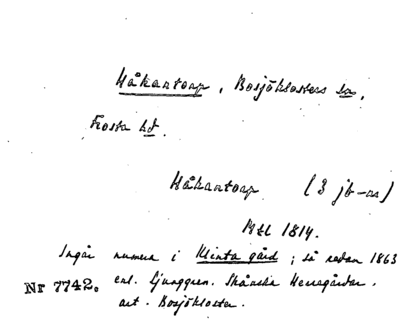 Håkantorp, Bosjöklosters sn,
Frosta hd.
Håkantorp (3 jb-nr)
Mtl 1814.
Ingår numera i Klinta gård; så redan 1863
enl. Ljunggren. Skånska Herregårdar.
Nr 7742. art. Bosjökloster.